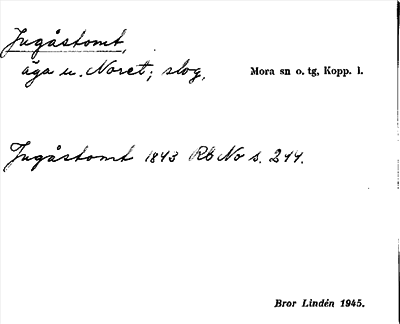 Jugåstomt,
äga u. Noret; slog, Mora sn o. tg, Kopp. l.
Jugåstomt 1843 Rb No s. 244.
Bror Lindén 1945.